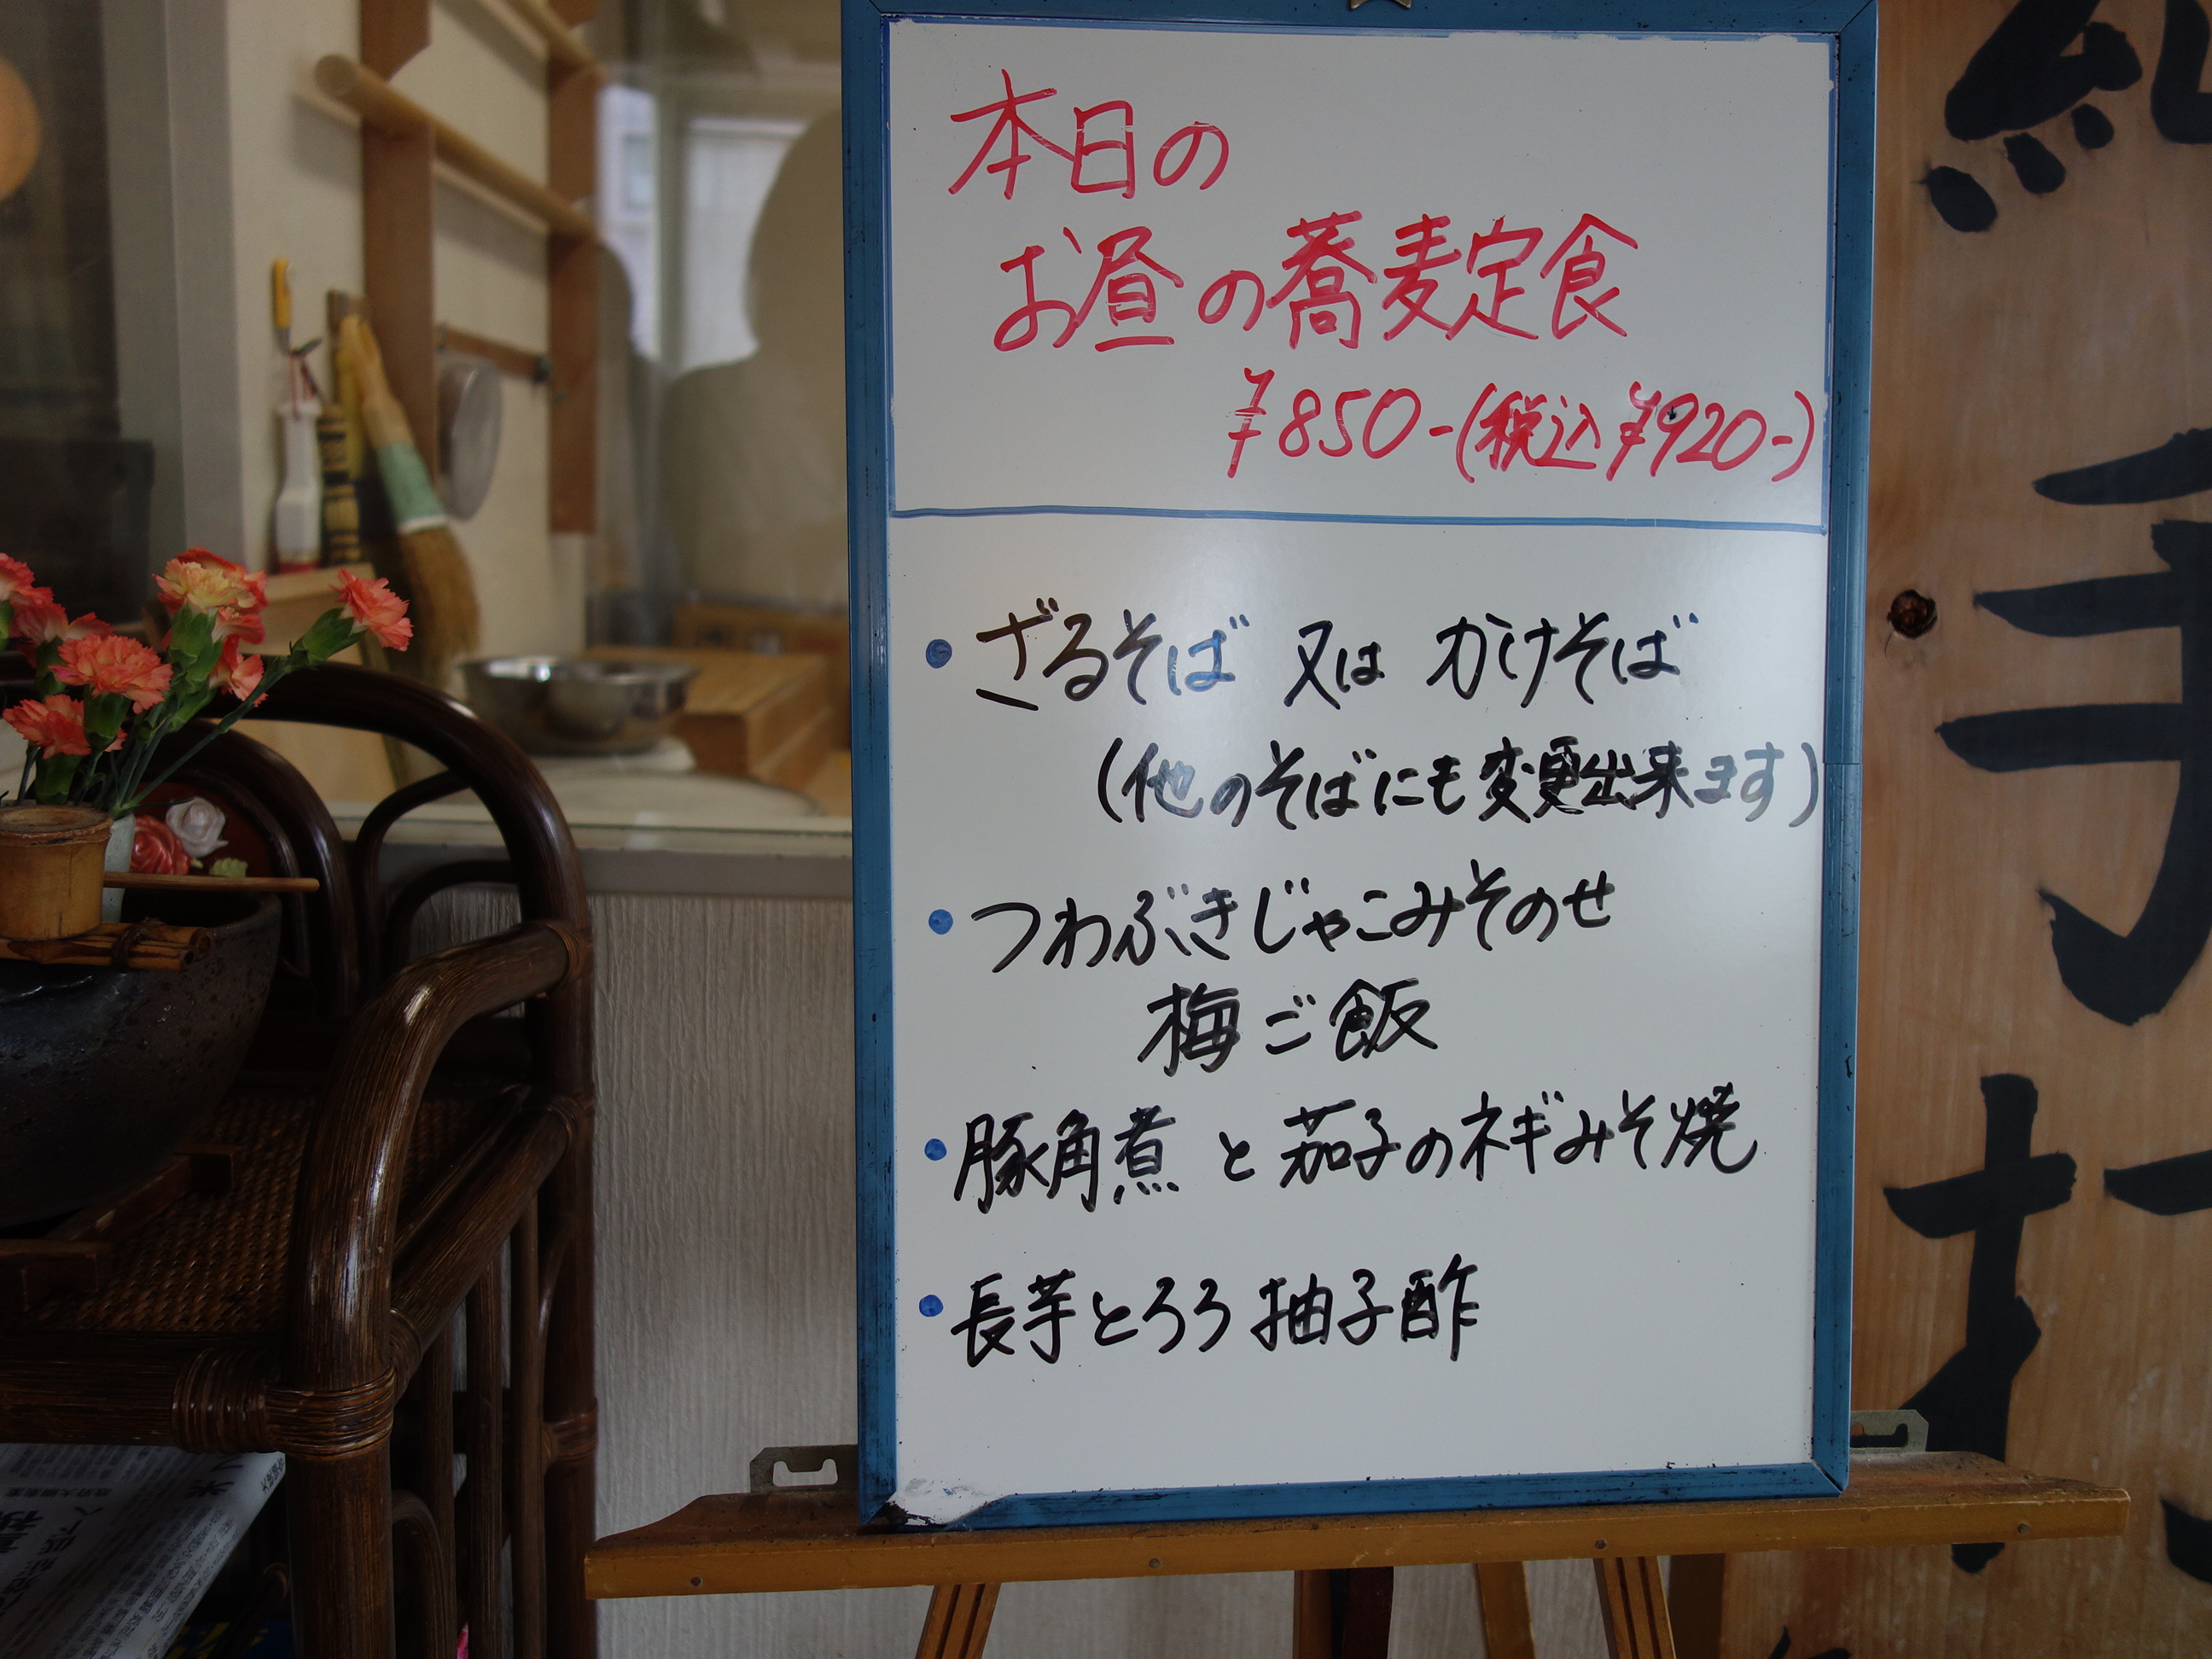 本日の
お昼の蕎麦定食
¥850-(税込¥920-)
・ざるそば 又は かけそば
(他のそばにも変更出来ます)
・つわぶきじゃこみそのせ
梅ご飯
・豚角煮と茄子のネギみそ焼
・長芋とろろ柚子酢
手
打